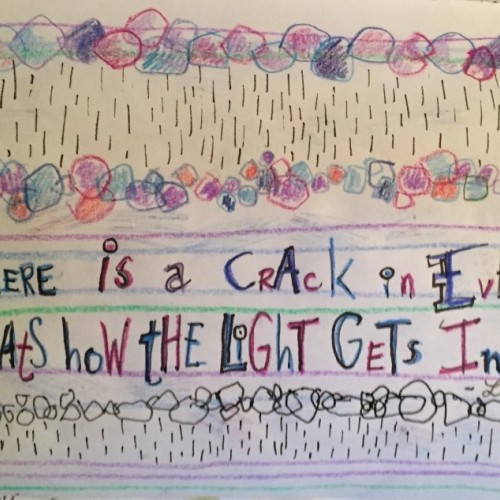 ERE is a CRAck in Ev
AtS hoW tHE LiGhT GETs In